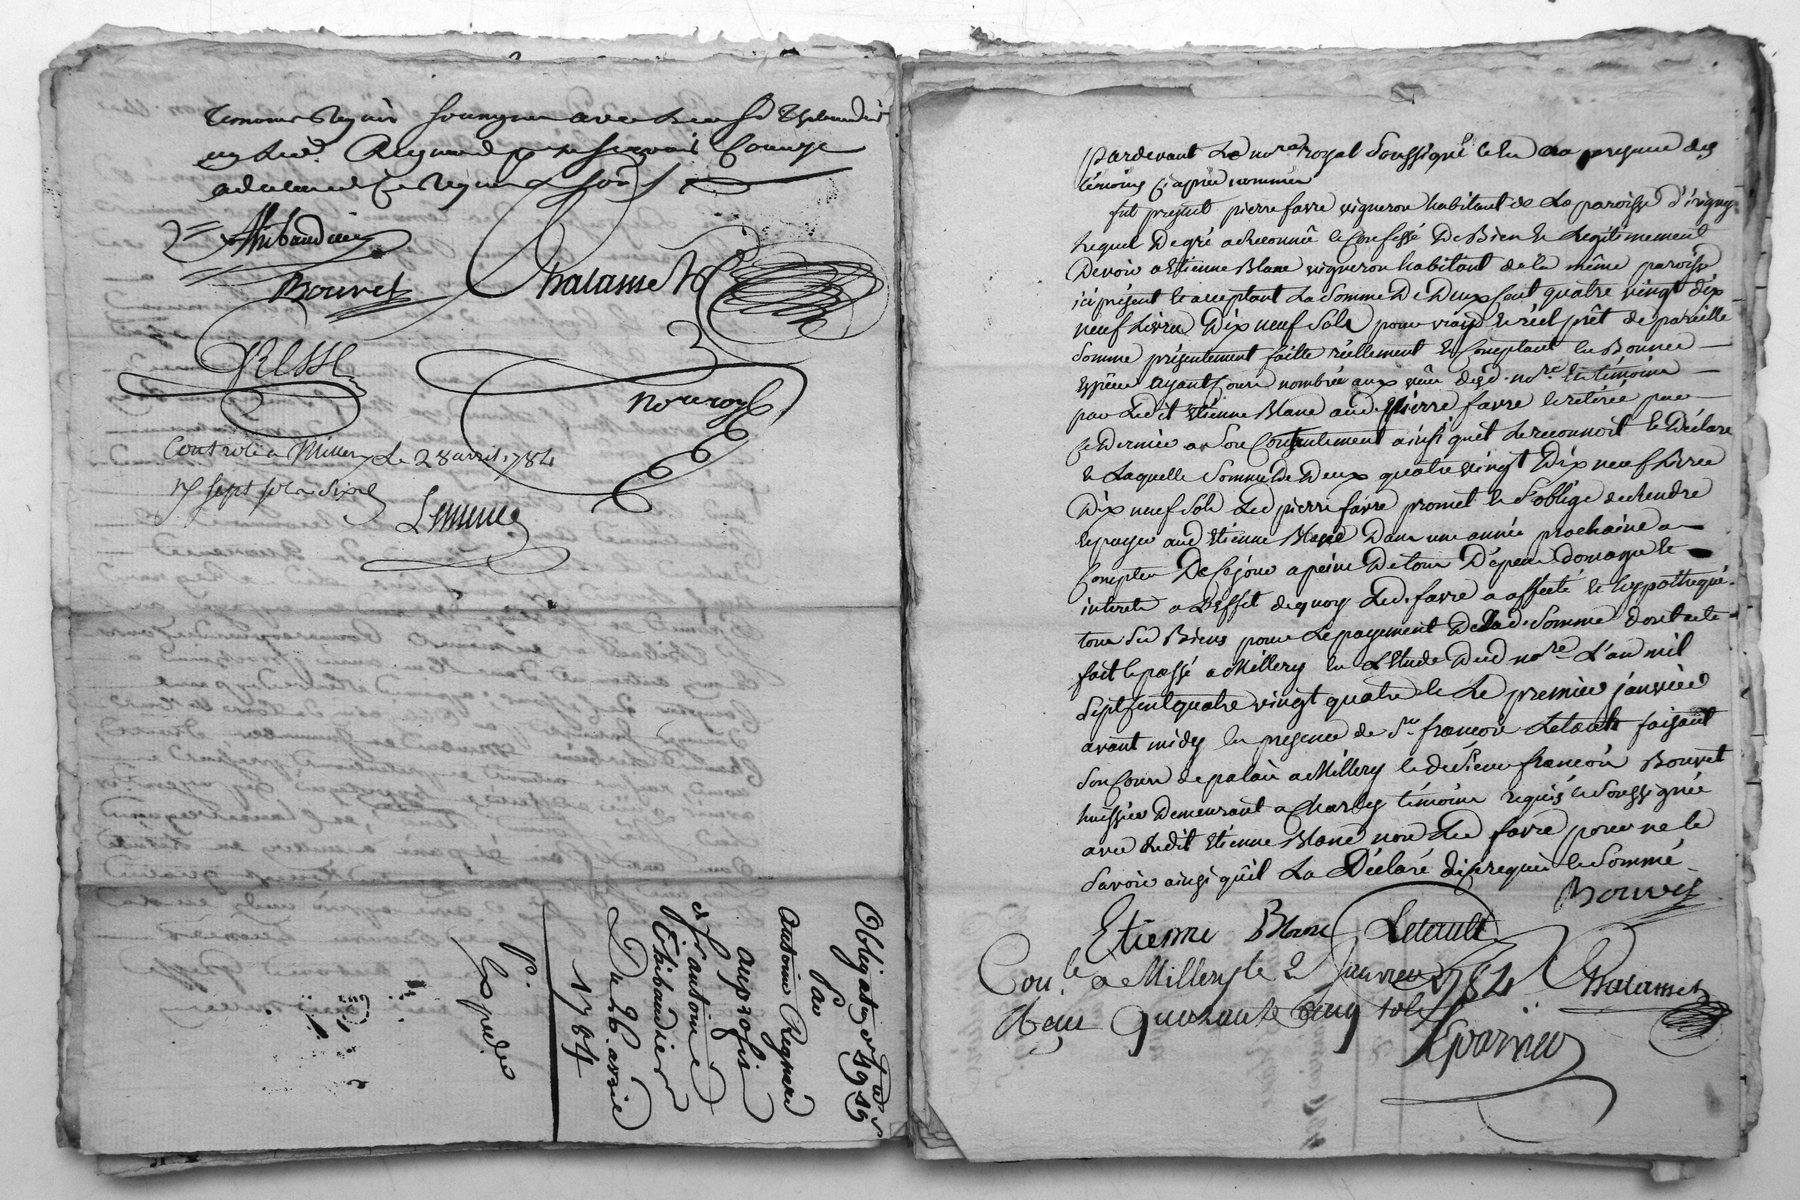 temoins requis soussignes avec led. Sr Thibaudier
led. Reynard pour ne sçavoir
a declaré de ce requis et
Thibaudier
Bouvet
Chalamet
Gresse
Nouroy
Controlé a Millery le 28 avril 1784
sept sols six d
Lemme
Obligaon de 49
Par
Antoine Reynard
au profit
de Sr antoine
Thibaudier
Du 26 avril
1784
Expedie
Pardevant Le nore royal soussigné et en la presence des
témoins cy aprés nommés
fut present pierre favre vigneron habitant de La paroisse d'irigny
Lequel De gré a Reconnû et Confessé De Bien et Legitimement
Devoir a Etienne Blanc vigneron habitant de la même paroisse
ici présent et acceptant La Somme De Deux Cent quatre vingt dix
neuf Livres Dix neuf Sols pour vray et réel prêt de pareille
Somme présentement faitte réellement et Comptant en Bonnes
espéces ayant Cours nombrées aux vûes dud. nore et témoins
par Ledit Etienne Blanc aud. pierre favre et retirée par
ce Dernier a Son Contentement ainsi qu'il Le reconnoit et Déclare
et Laquelle Somme De Deux quatre vingt Dix neuf Livres
Dix neuf Sols Led pierre favre promet et S'oblige de Rendre
et payer aud Etienne Blanc Dans une année prochaine a
Compter De Ce jour a peine De tous Dépens Domages et
interets a L'effet de quoy Led. favre a affecté et hypothequé
tous Ses Biens pour Le payement De lad. Somme dont acte
fait et passé a Millery en L'Etude Dud nore L'an mil
Sept Cent quatre vingt quatre et Le premier janvier
avant midy en presence de Sr françois Letault faisant
Son Cours de palais a Millery et de Sieur françois Bouvet
huissier Demeurant a Charly témoins requis et Soussignés
avec Ledit Etienne Blanc non Led favre pour ne le
Savoir ainsi qu'il La Déclaré de ce requis et Sommé
Bouvet
Etienne Blanc Letault
Conlé a Millery le 2 Janvier 1784 Chalamet
Reçu Quarante Cinq sols